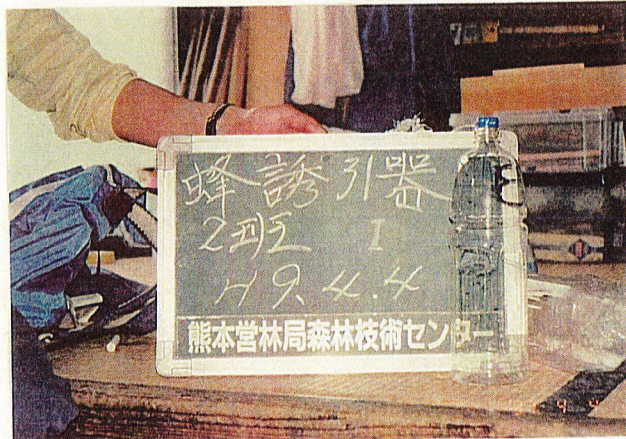 蜂誘引器
2班 I
H9.4.4
熊本営林局森林技術センター